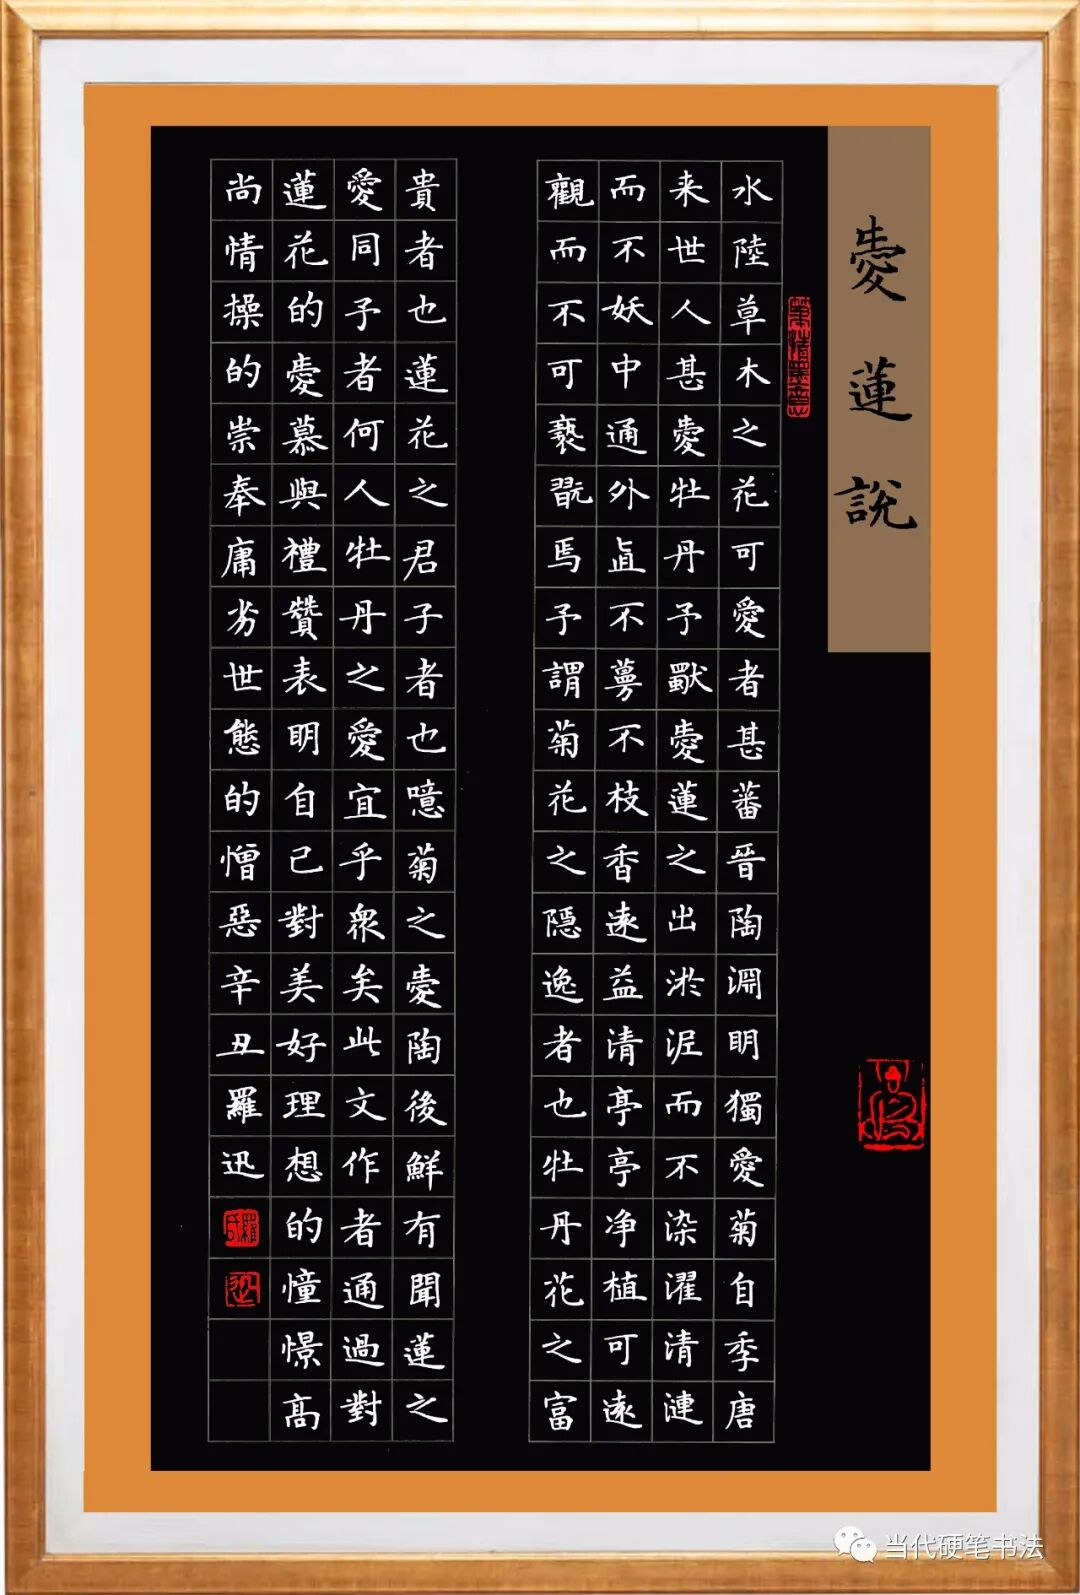 愛蓮說
水陸草木之花可愛者甚蕃晉陶淵明獨愛菊自季唐
来世人甚愛牡丹予獸愛蓮之出淤泥而不染濯清漣
而不妖中通外直不蔓不枝香遠益清亭亭净植可遠
觀而不可褻翫焉予謂菊花之隱逸者也牡丹花之富
貴者也蓮花之君子者也噫菊之愛陶後鮮有聞蓮之
愛同予者何人牡丹之愛宜乎衆矣此文作者通過對
蓮花的愛慕與禮贊表明自己對美好理想的憧憬高
尚情操的崇奉庸劣世態的憎惡辛丑羅迅
当代硬笔书法